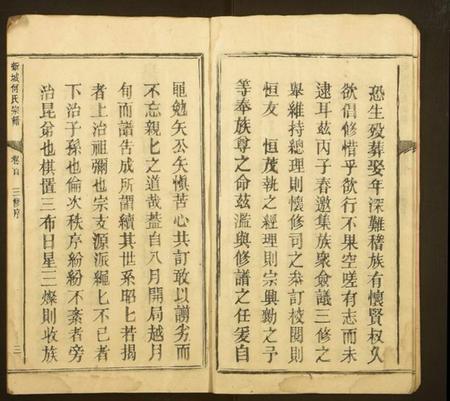 恐生歿葬娶年深難稽族有懷賢叔久
欲倡修惜乎欲行不果空嗟有志而未
逮耳茲丙子春邀集族眾僉議三修之
舉維持總理則懷修司之參訂校閱則
恒友 恒茂執之經理則宗興勷之予
等奉族尊之命茲濫與修譜之任爰自
黽勉矢公矢慎苦心共訂敢以謭劣而
不忘親匕之道哉葢自八月開局越月
旬而譜告成所謂續其世系昭匕若揭
者上治祖禰也宗支源派繩匕不已者
下治子孫也倫次秩序紛紛不紊者旁
治昆弟也棋置三布日星三燦則收族
新城何氏宗譜
卷首
三修序
三